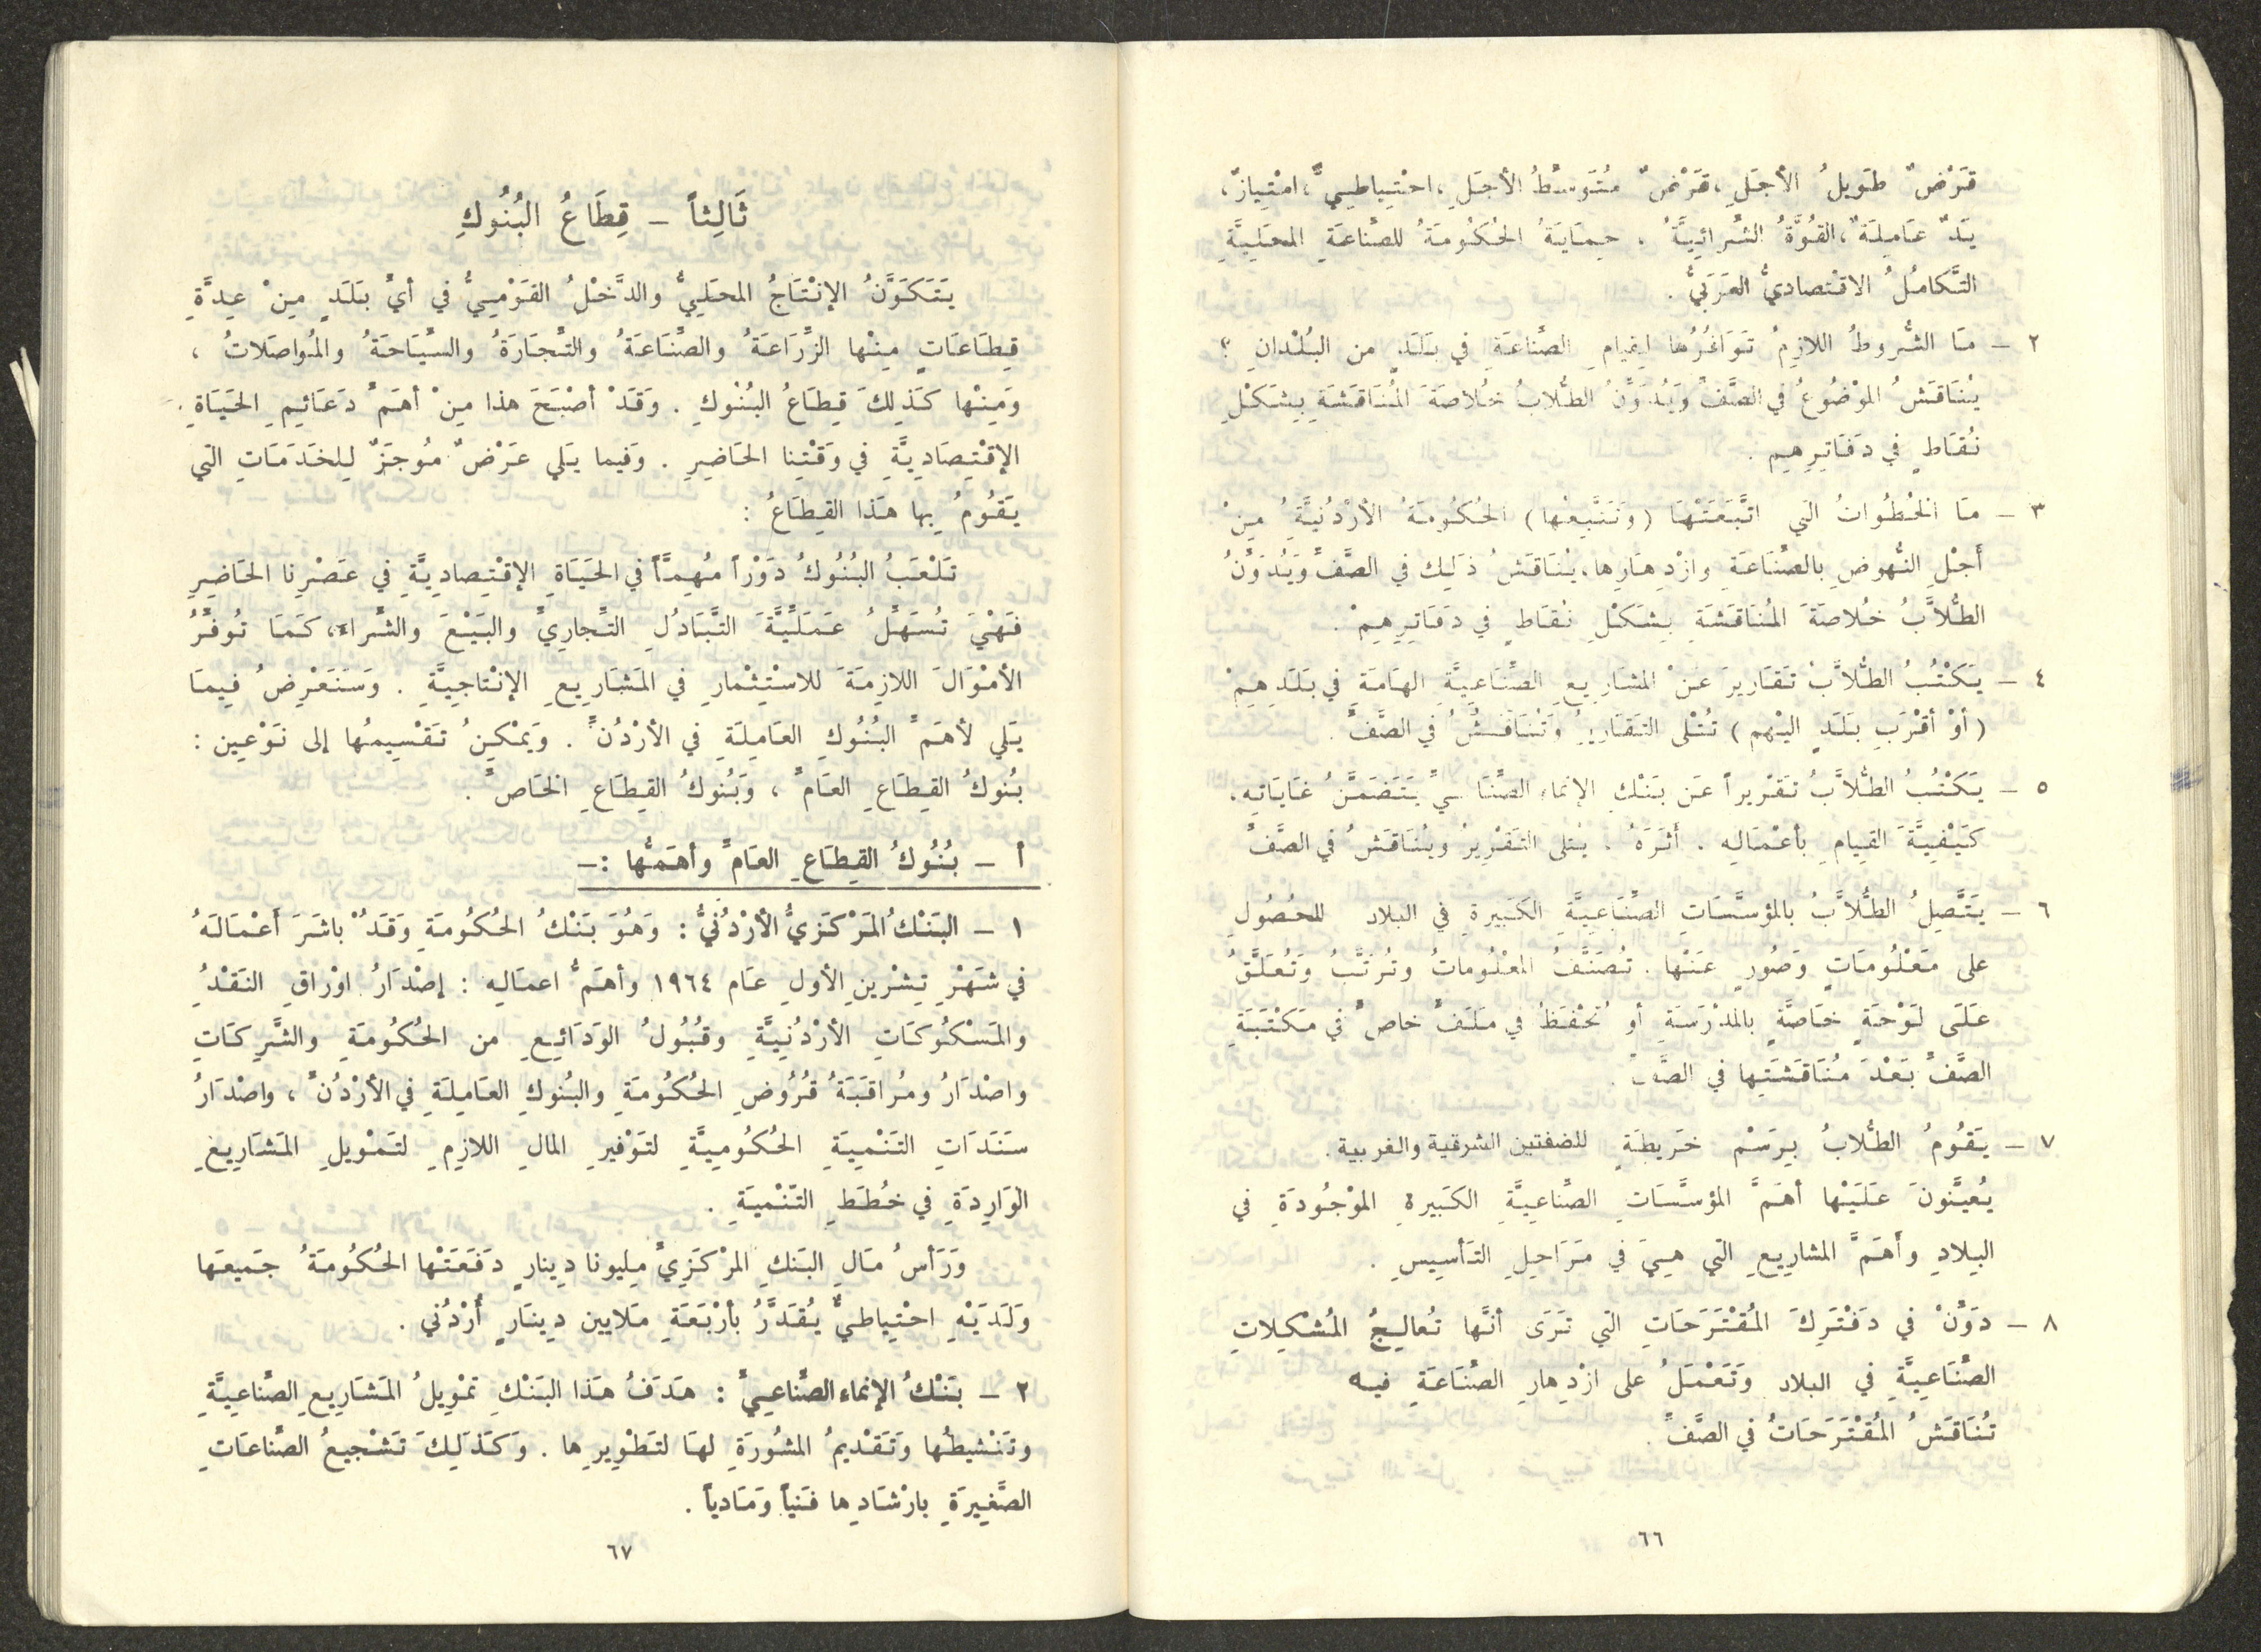 قَرْضٌ طَويلُ الأجَلِ ، قَرْضٌ مُتَوسِّطُ الأجَلِ ، احْتِياطِيٌّ ، امْتِيازٌ ،
يَدٌ عَامِلَةٌ ، القُوَّةُ الشِّرائِيَّةُ ، حِمَايَةُ الحُكُومَةُ للصِّناعَةِ المحَلِيَّةِ
التَّكامُلُ الاقْتصاديُّ العَرَبيُّ .
٢ – مَا الشُّروطُ اللازِمُ تَوَافُرُها لِقيامِ الصِّنَاعَةِ في بَلَدٍ من البُلْدانِ ؟
يُنَاقَشُ الموْضُوعُ في الصَّفِّ وَيُدَوِّنُ الطُّلابُ خُلاصَةَ المُنَاقَشَةِ بِشَكْلِ
نُقَاطٍ في دَفَاتِرِهِم .
٣ – مَا الخُطُواتُ التي اتَّبَعَتْهَا (وتَتَّبِعُها) الحُكُومَةُ الأرْدُنِيَّةُ مِنْ
أَجْلِ النُّهوضِ بِالصِّنَاعَةِ وازْدِهَارِها، يُنَاقَشُ ذَلِكَ في الصَّفِّ وَيُدَوِّنُ
الطُّلاَّبُ خُلاصَةَ المُنَاقَشَةِ بِشَكْلِ نُقَاطٍ في دَفَاتِرِهِمْ .
٤ – يَكْتُبُ الطُّلاَّبُ تَقَاريرَ عَنْ المشَارِيعِ الصِّنَاعِيَّةِ الهَامَةِ في بَلَدِهِمْ
(أوْ أقْرَبِ بَلَدٍ اليْهم) تُتْلى التَقَاريرُ وَتُنَاقَشُ في الصَّفِّ .
٥ – يَكْتُبُ الطُّلاَّبُ تَقْريراً عَن بَنْكِ الإنماء الصِّنَاعِيِّ يَتَضَمَّنُ غَايَاتِهِ ،
كَيْفِيَّةَ القِيامِ بأعْمَالِهِ . أَثَرَهُ . يُتلى التَقْرِيرُ ويُنَاقَشُ في الصَّفِّ
٦ – يَتَّصِلُ الطُّلاَّبُ بالمؤسَّسَاتِ الصِّنَاعِيَّةِ الكَبيرةِ في البلاد للحُصُولِ
على مَعْلُومَاتٍ وَصُورٍ عَنْها . تُصَنَّفُ المعْلُوماتُ وتُرَتَّبُ وَتُعَلَّقُ
عَلَى لَوْحَةٍ خَاصَّةٍ بالمدْرَسَةِ أو تُحْفَظُ في مَلَفٍّ خاصٍّ في مَكْتَبَةِ
الصَّفِّ بَعْدَ مُنَاقَشَتِها في الصَّفِّ .
٧ – يَقُومُ الطُّلابُ بِرَسْم خَريطَةٍ للضفتين الشرقية والغربية .
يُعيِّنونَ عَلَيْها أهَمَّ المؤسَّسَاتِ الصِّناعِيَّةِ الكَبيرةِ الموْجُودَةِ في
البِلادِ وأَهَمَّ المشارِيعِ التي هِيَ في مَرَاحِلِ التَأسِيسِ .
٨ – دَوِّنْ في دَفْتَرِكَ المُقْتَرَحَاتِ التي تَرَى أنَّها تُعالِجُ المُشْكِلاتِ
الصِّنَاعِيَّةِ في البلاد وَتَعْمَلُ على ازْدِهارِ الصِّنَاعَةِ فيه
تُنَاقَشُ المُقْتَرَحَاتُ في الصَّفِّ .
٦٦
ثَالِثاً – قِطَاعُ البُنُوكِ
يَتَكَوَّنُ الإنْتَاجُ المحَلِيُّ والدَّخْلُ القَوْمِيُّ في أيِّ بَلَدٍ مِنْ عِدَّةِ
قِطَاعَاتٍ مِنْها الزِّرَاعَةُ والصِّنَاعَةُ والتِّجَارَةُ والسِّيَاحَةُ والمُواصَلاتُ ،
ومَنِنْها كَذَلِكَ قِطَاعُ البُنُوكِ . وَقَدْ أصْبَحَ هذا مِنْ أهَمِّ دَعَائِمِ الحَيَاةِ .
الإقْتِصَادِيَّةِ في وَقْتِنا الحَاضِرِ . وَفيما يَلي عَرْضٌ مُوجَزٌ لِلخَدَمَاتِ التي
يَقُومُ بِها هَذا القِطَاعُ :
تَلْعَبُ البُنُوكُ دَوْراً مُهِمَّاً في الحَيَاةِ الإقْتِصادِيَّةِ في عَصْرِنا الحَاضِرِ
فَهْيَ تُسَهِّلُ عَمَلِيَّةَ التَّبَادُلِ التِّجاريِّ والبَيْعَ والشِّراء، كَمَا تُوفِّرُ
الأمْوَالَ اللازِمَةَ للاسْتِثْمارِ في المَشَارِيعِ الإنْتاجِيَّةِ . وَسَنَعْرِضُ فيمَا
يَلي لأهَمِّ البُنُوكِ العَامِلَةِ في الأرْدُنِّ . وَيمْكِنُ تَقْسِيمُها إلى نَوْعين :
بُنُوكُ القِطَاعِ العَامِّ ، وَبُنُوكُ القِطَاعِ الخَاصِّ .
أ – بُنُوكُ القِطَاعِ العَامِّ وأهَمُّها :–
١ – البَنْكُ المَرْكَزِيُّ الأُرْدُنيُّ : وَهُوَ بَنْكُ الحُكُومَةِ وَقَدْ باشَرَ أعْمَالَهُ
في شَهْرِ تِشْرينِ الأولِ عَام ١٩٦٤ وأهَمُّ اعمَالِهِ : إصْدَارُ اوْراقِ النَقْدِ
والمَسْكُوكَاتِ الأرْدُنِيَّةِ وقُبُولُ الوَدَائِعِ من الحُكُومَةِ والشَّرِكَاتِ
واصْدَارُ ومُراقَبَةُ قُرُوضِ الحُكُومَةِ والبُنوكِ العَامِلَةِ في الأرْدُنِّ ، واصْدَارُ
سَنَدَاتِ التَنْمِيَةِ الحُكُومِيَّةِ لتَوْفيرِ المالِ اللازِمِ لتَمْويلِ المَشَارِيعِ
الوَارِدَةِ في خُطَطِ التّنْميَةِ .
وَرَأسُ مَالِ البَنكِ المرْكَزِيِّ مِليونا دِينارٍ دَفَعَتْها الحُكُومَةُ جَميعَها
وَلَدَيْهِ احْتِياطيٌّ يُقَدَّرُ بأرْبَعَةِ مَلايين دِينَارٍ أُرْدُني .
٢ – بَنْكُ الإنماء الصِّناعِيِّ : هَدَفُ هَذا البَنْكِ تمْوِيلُ المَشَارِيعِ الصِّناعِيَّةِ
وتَنْشيطُها وَتَقْديمُ المشُورَةِ لهَا لتَطْوِيرِها . وَكَذَلِكَ تَشْجيعُ الصِّناعَاتِ
الصَّغِيرَةِ بارْشَادِها فَنياً وَمَادياً .
٦٧